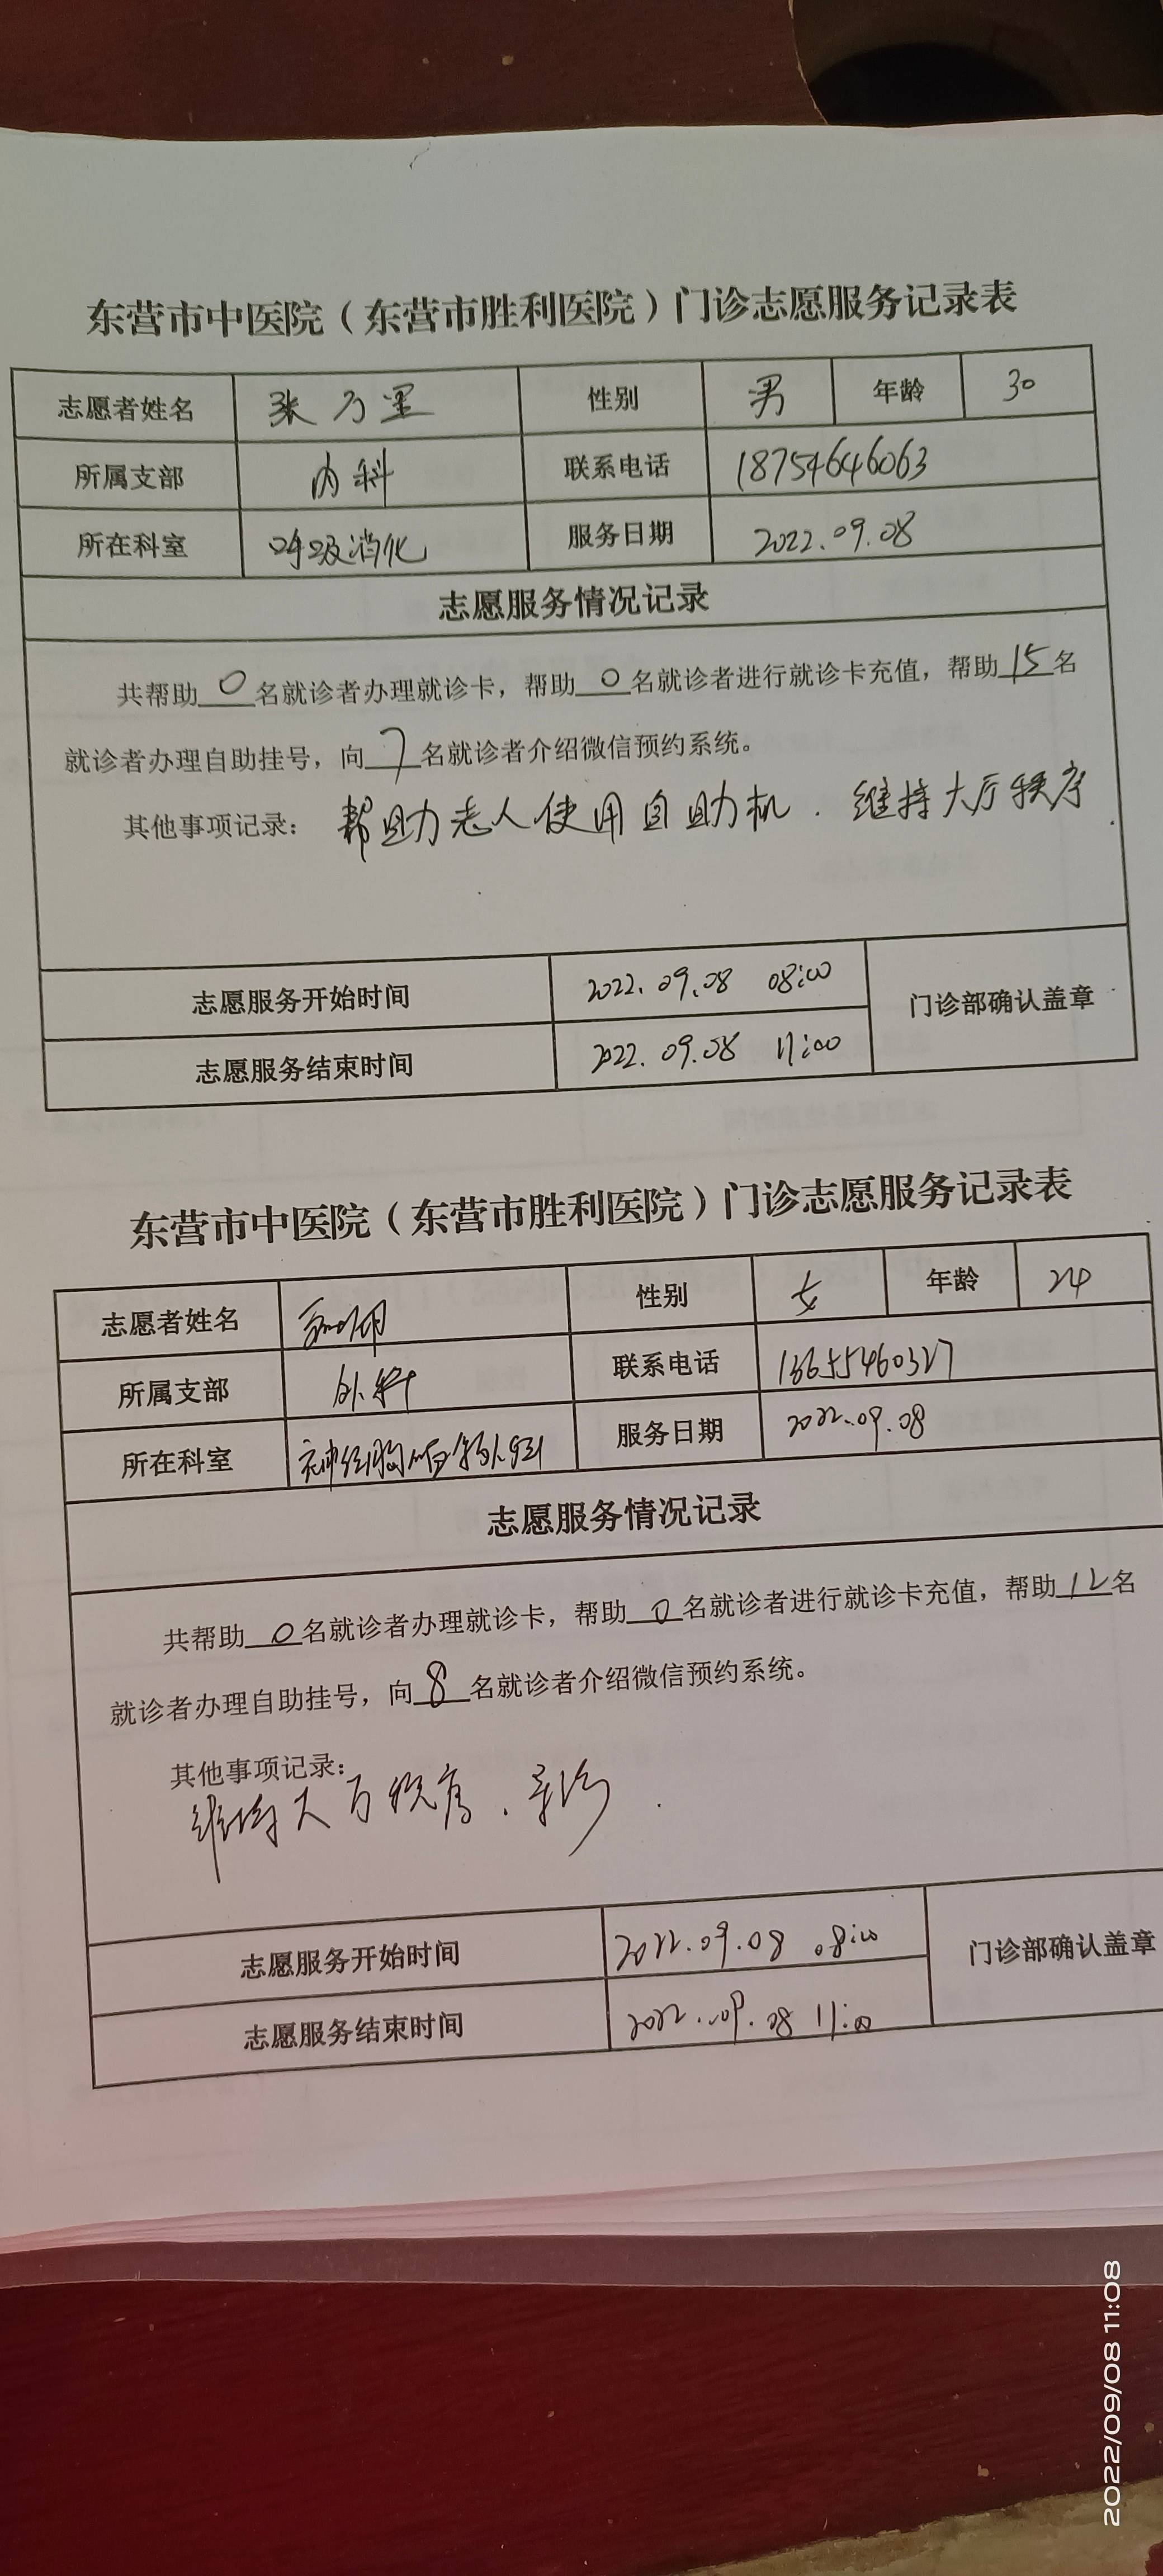 东营市中医院（东营市胜利医院）门诊志愿服务记录表
志愿者姓名 张万里 性别 男 年龄 30
所属支部 内科 联系电话 18754646063
所在科室 呼吸消化 服务日期 2022.09.08
志愿服务情况记录
共帮助0名就诊者办理就诊卡，帮助0名就诊者进行就诊卡充值，帮助15名
就诊者办理自助挂号，向7名就诊者介绍微信预约系统。
其他事项记录： 帮助老人使用自助机．维持大厅秩序．
志愿服务开始时间 2022.09.08 08:00
门诊部确认盖章
志愿服务结束时间 2022.09.08 11:00
东营市中医院（东营市胜利医院）门诊志愿服务记录表
志愿者姓名 性别 女 年龄 24
所属支部 外科 联系电话
所在科室 服务日期 2022.09.08
志愿服务情况记录
共帮助0名就诊者办理就诊卡，帮助0名就诊者进行就诊卡充值，帮助12名
就诊者办理自助挂号，向8名就诊者介绍微信预约系统。
其他事项记录：
维持大厅秩序．导诊．
志愿服务开始时间 2022.09.08 08:00
门诊部确认盖章
志愿服务结束时间 2022.09.08 11:00
2022/09/08 11:08